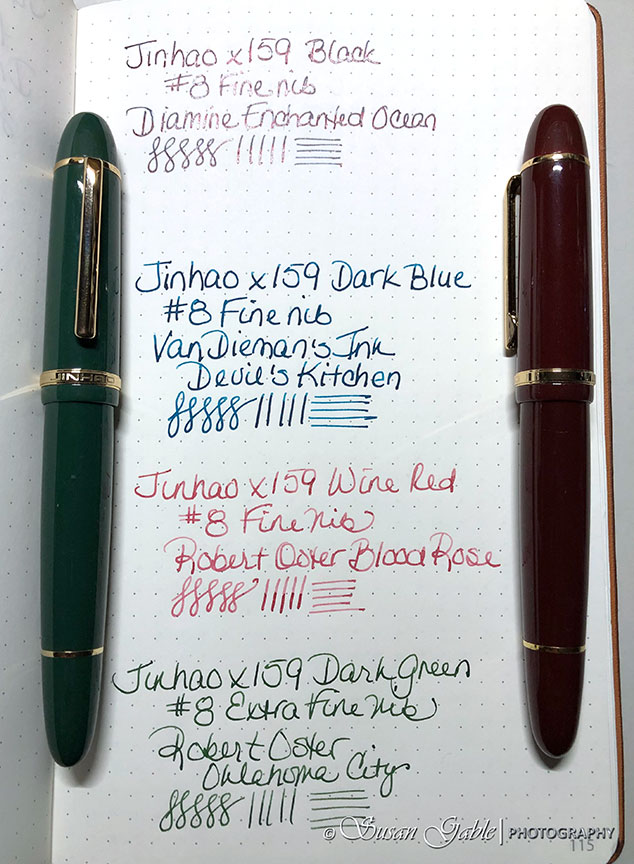 Jinhao x159 Black
#8 Fine nib
Diamine Enchanted Ocean
Jinhao x159 Dark Blue
#8 Fine nib
Van Dieman's Ink
Devil's Kitchen
JINHAO
Jinhao x159 Wine Red
#8 Fine Nib
Robert Oster Blood Rose
Jinhao x159 Dark Green
#8 Extra Fine Nib
Robert Oster
Oklahoma City
© Susan Gable | PHOTOGRAPHY
115